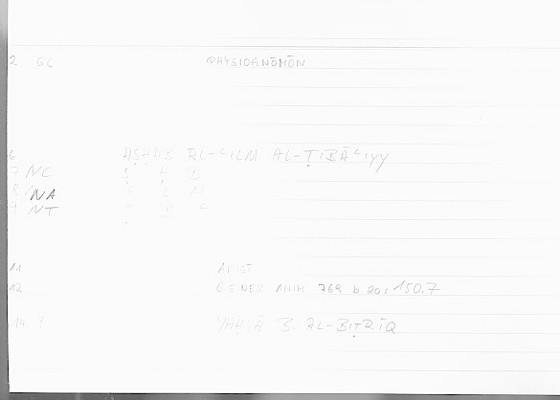 2 GC PHYSIOGNŌMŌN
6 AṢḤĀB AL-ʿILM AL-ṬIBĀʿIYY
7 NC Ṣ Ḥ B
8 NA ʿ L M
9 NT Ṭ B ʿ
11 ARIST
12 GENER ANIM 769 b 20; 150.7
14 1 YAḤYĀ B. AL-BIṬRĪQ